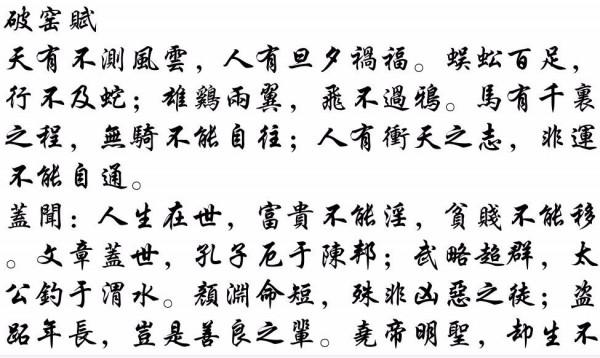 破窑賦
天有不測風雲，人有旦夕禍福。蜈蚣百足，
行不及蛇；雄鷄兩翼，飛不過鴉。馬有千裏
之程，無騎不能自往；人有衝天之志，非運
不能自通。
蓋聞：人生在世，富貴不能淫，貧賤不能移
。文章蓋世，孔子厄于陳邦；武略超群，太
公釣于渭水。顏淵命短，殊非凶惡之徒；盜
跖年長，豈是善良之輩。堯帝明聖，却生不